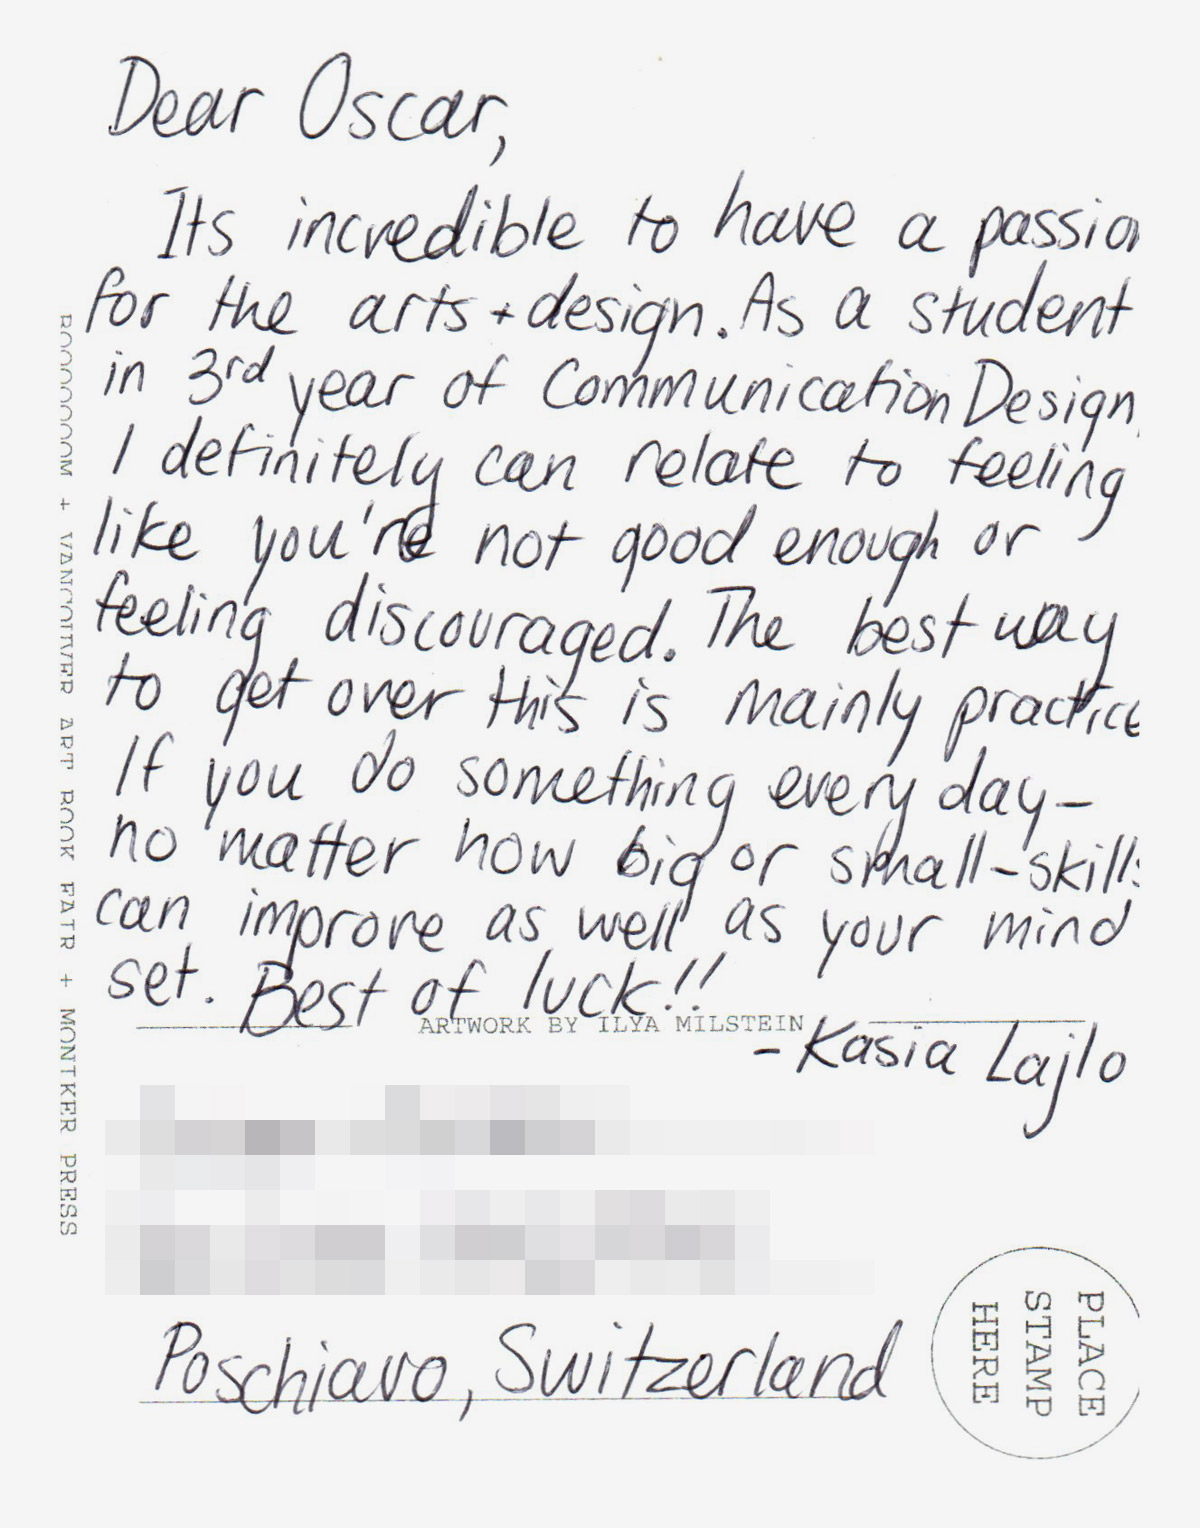 Dear Oscar,
Its incredible to have a passion
for the arts + design. As a student
in 3rd year of Communication Design,
I definitely can relate to feeling
like you're not good enough or
feeling discouraged. The best way
to get over this is mainly practice
If you do something every day–
no matter how big or small–skills
can improve as well as your mind
set. Best of luck!!
ARTWORK BY ILYA MILSTEIN
– Kasia Lajlo
Poschiavo, Switzerland
PLACE
STAMP
HERE
BOOOOOOOM + VANCOUVER ART BOOK FAIR + MONIKER PRESS